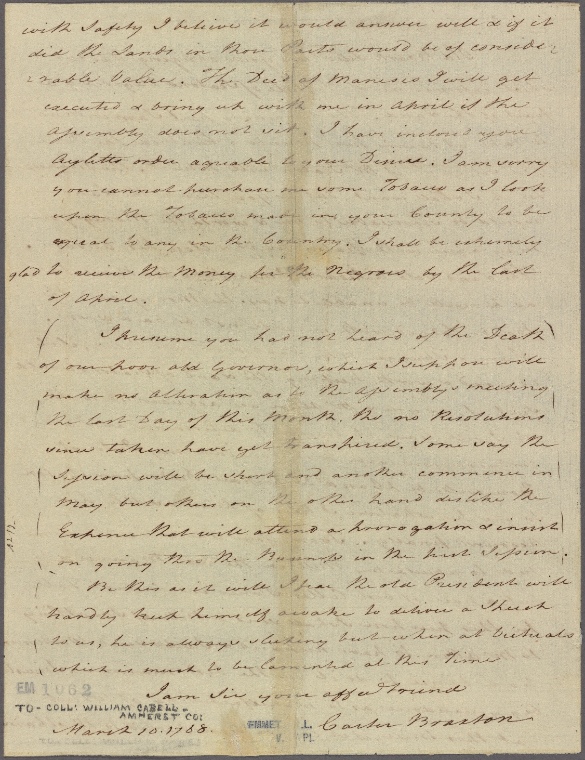 with Safety I believe it would answer well & if it
did the Lands in those Parts would be of conside-
-rable Value. The Deed of Maneses I will get
executed & bring up with me in April if the
Assembly does not sit. I have inclosed you
Ayletts order agreable to your Desire. I am sorry
you cannot purchase me some Tobacco as I look
upon the Tobacco made in your County to be
equal to any in the Country. I shall be extremely
glad to receive the Money for the Negroes by the last
of April.
I presume you had not heard of the Death
of our poor old Governor, which I suppose will
make no Alteration as to the Assembly's meeting
the last Day of this Month. tho no Resolutions
since taken have yet transpired. Some say the
Session will be short and another commence in
May but others on the other hand dislike the
Expence that will attend a prorogation & insist
on going thro the Business in the first Session.
Be this as it will I fear the old President will
hardly keep himself awake to deliver a Speech
to us, he is always sleeping but when at Victuals
which is much to be lamented at this Time
I am Sir your affe Friend
Carter Braxton
March 10. 1768.
EM 1062
TO - COLL: WILLIAM CABELL -
AMHERST CO:
EMMET